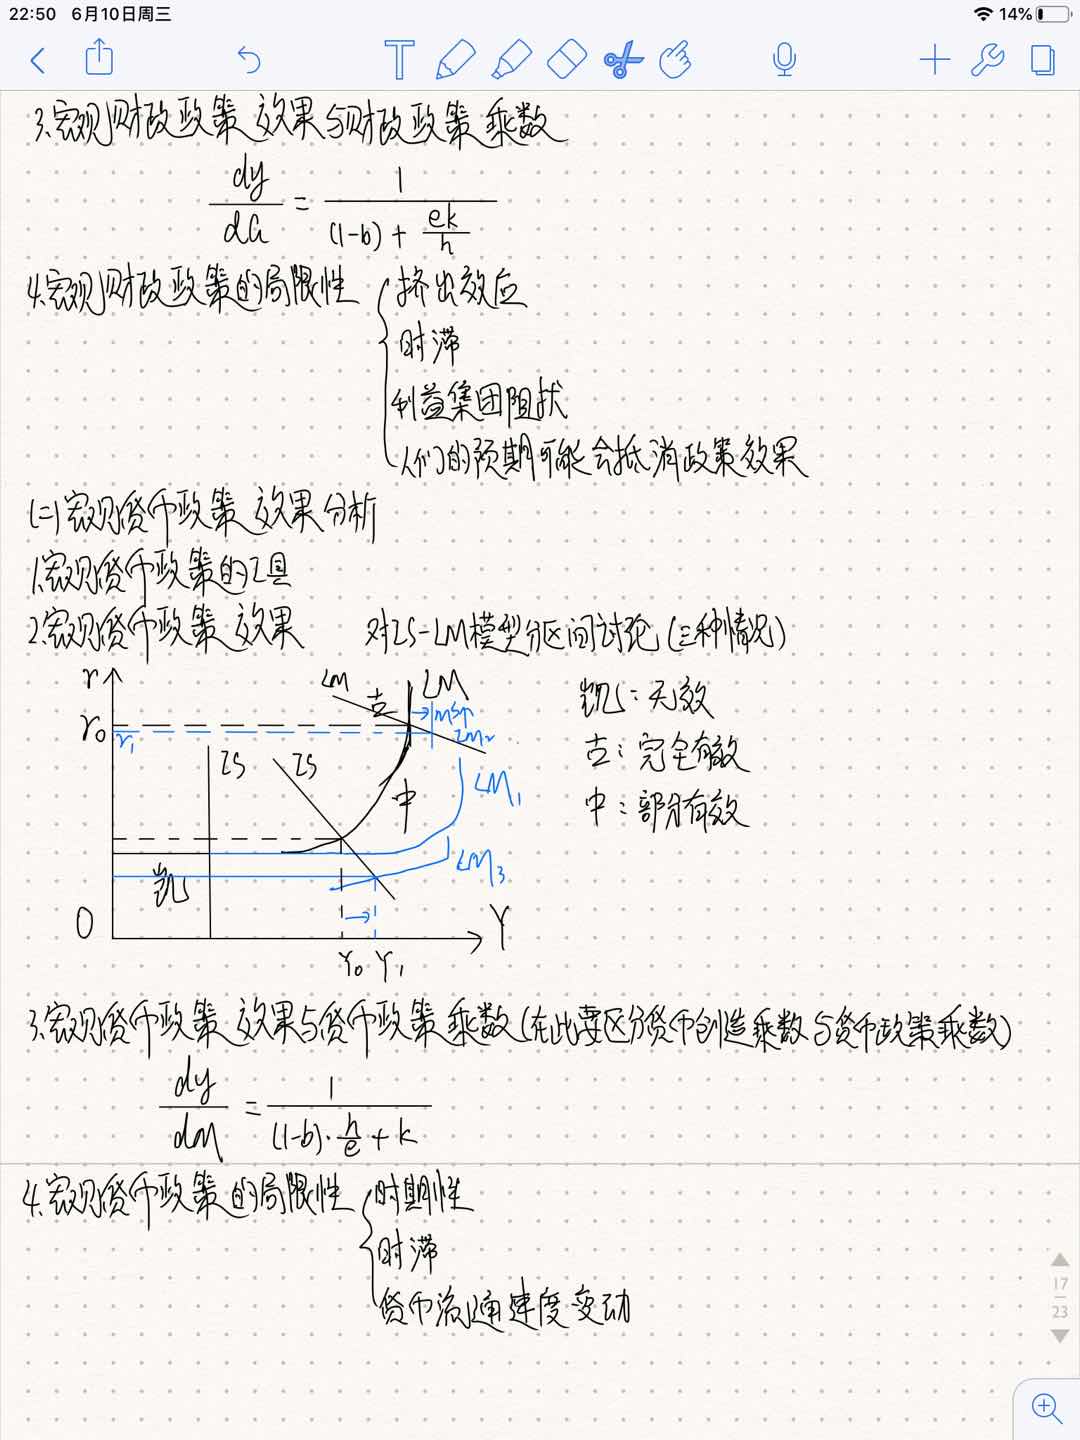 22:50 6月10日周三
14%
3.宏观财政政策效果与财政政策乘数
dy/dG = 1/((1-b)+ek/h)
4.宏观财政政策的局限性
挤出效应
时滞
利益集团阻扰
人们的预期可能会抵消政策效果
(二)宏观货币政策效果分析
1.宏观货币政策的工具
2.宏观货币政策效果 对IS-LM模型分区间讨论(三种情况)
r
LM 古 LM
r₀ r₁ → m↑
IS₂
IS IS
中
LM₁
LM₃
凯
O
→
Y
Y₀ Y₁
凯:无效
古:完全有效
中:部分有效
3.宏观货币政策效果与货币政策乘数(在此要区分货币创造乘数与货币政策乘数)
dy/dM = 1/((1-b)·h/e+k)
4.宏观货币政策的局限性
时期性
时滞
货币流通速度变动
17
23